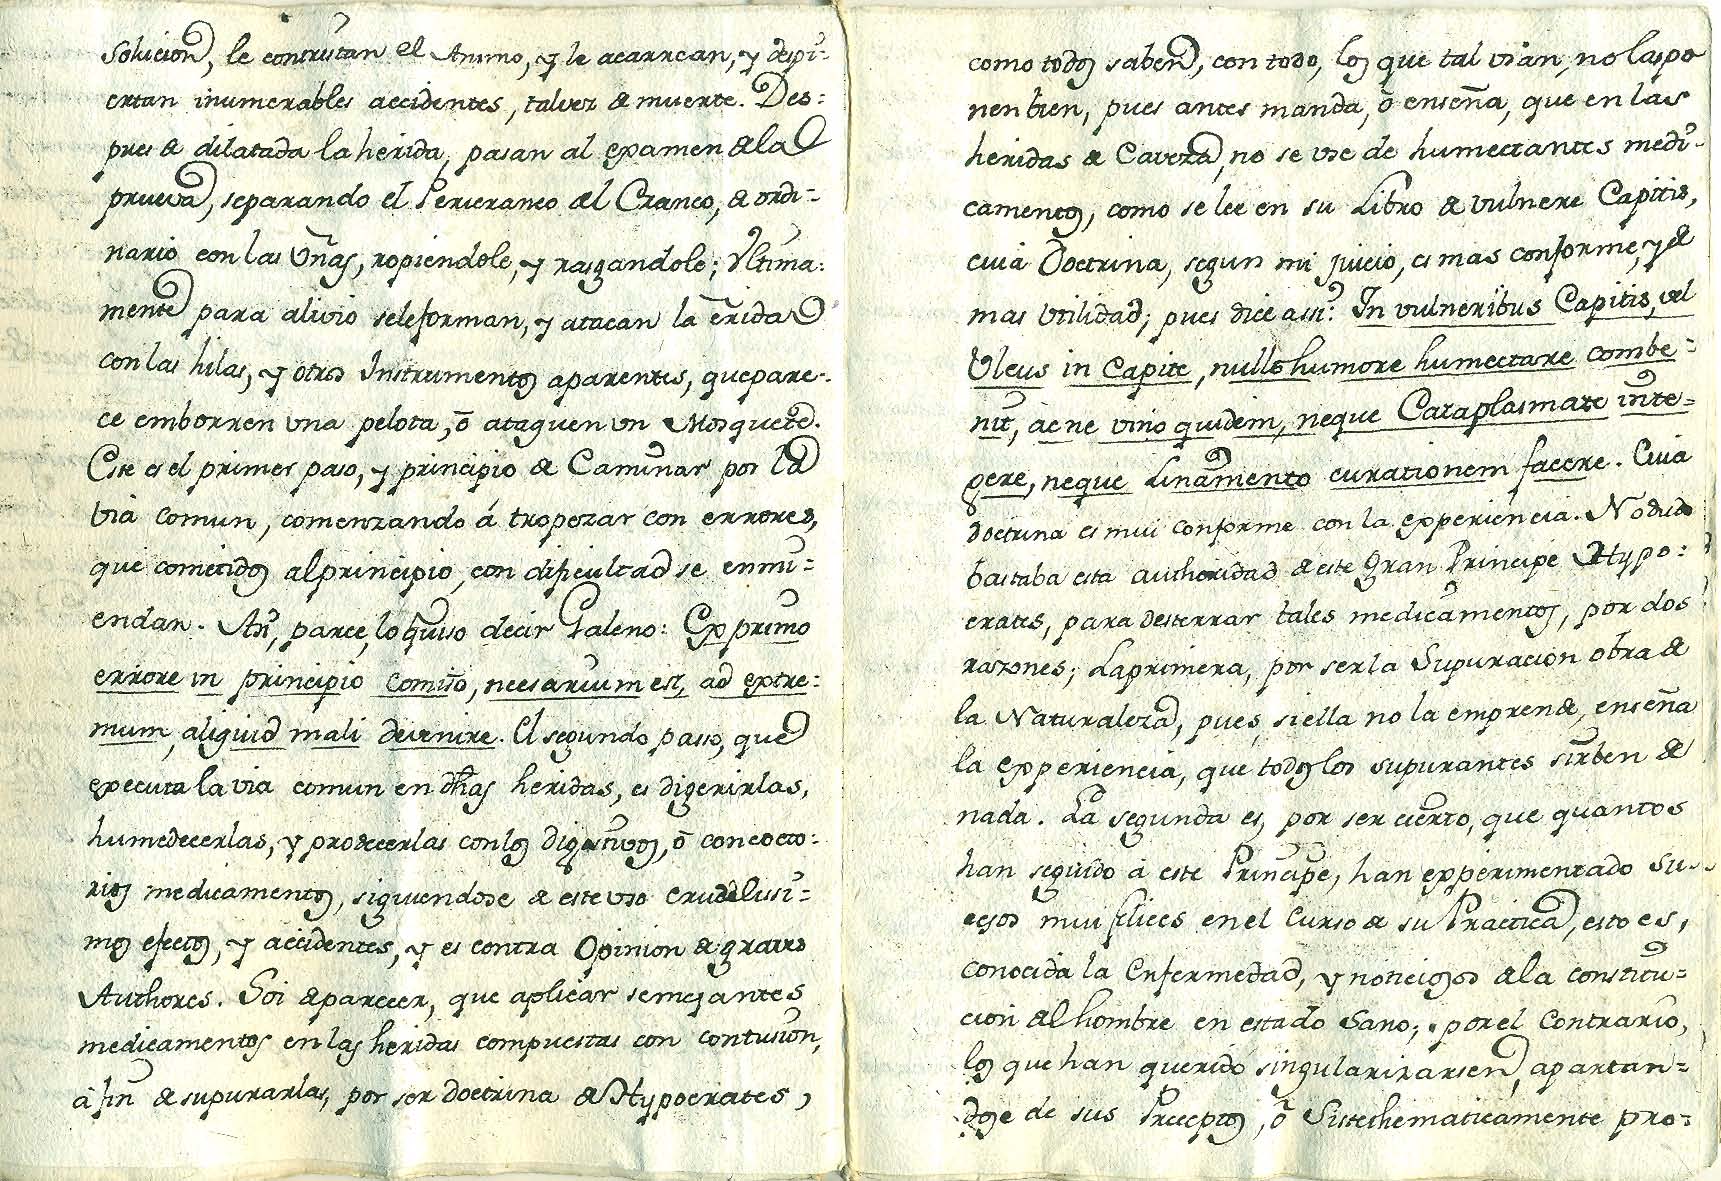 solucion, le contristan el Animo, y le acarrean, y despi-
ertan inumerables accidentes, talvez de muerte. Des:
pues de dilatada la herida, pasan al examen de la
prueva, separando el Pericraneo del Craneo, de ordi-
nario con las Uñas, ropiendole, y rasgandole; Ultima:
mente para alivio seleforman, y atacan la erida
con las hilas, y otros Instrumentos aparentes, quepare-
ce emborren una pelota, ó ataquen un Mosquete.
Este es el primer paso, y principio de Caminar por la
via comun, comenzando á tropezar con errores,
que cometidos alprincipio, con dificultad se enmi-
endan. Asi, parece, lo quiso decir Galeno: Ex primo
errore in principio comisso, necesarium est, ad extre:
mum, aliquid mali devenire. El segundo passo, que
executa la via comun en dhas heridas, es digerirlas,
humedecerlas, y prodecerlas con los digestivos, ó concocto:
rios medicamentos, siguiendose de este uso crudelisi-
mos efectos, y accidentes, y es contra Opinion de graves
Authores. Soi de parecer, que aplicar semejantes
medicamentos en las heridas compuestas con contusion,
á fin de supurarlas, por ser doctrina de Hypocrates,
como todos saben, con todo, los que tal usan, no laspo
nen bien, pues antes manda, ó enseña, que en las
heridas de Caveza, no se use de humectantes medi-
camentos, como se lee en su Libro de vulnere Capitis,
cuia Doctrina, segun mi juicio, es mas conforme, y de
mas utilidad; pues dice assi: In vulneribus Capitis, vel
Ulcus in Capite, nullo humore humectare combe-
nit, ac ne vino quidem, neque Cataplasmate inte-
gere, neque Linamento curationem facere. Cuia
doctrina es mui conforme con la experiencia. No dudo
bastaba esta autheridad de este gran Principe Hypo:
crates, para desterrar tales medicamentos, por dos
razones; Laprimera, por ser la Supuracion obra de
la Naturaleza, pues, si ella no la emprende, enseña
la experiencia, que todos los supurantes sirben de
nada. La segunda es, por ser cierto, que quantos
han seguido á este Principe, han experimentado su-
cesos mui felices en el Curso de su Practica, esto es,
conocida la Enfermedad, y noticiosos de la constitu-
cion del hombre en estado Sano; por el Contrario,
los que han querido singularizarsen, apartan-
dose de sus Preceptos, ó Sisthematicamente pro-